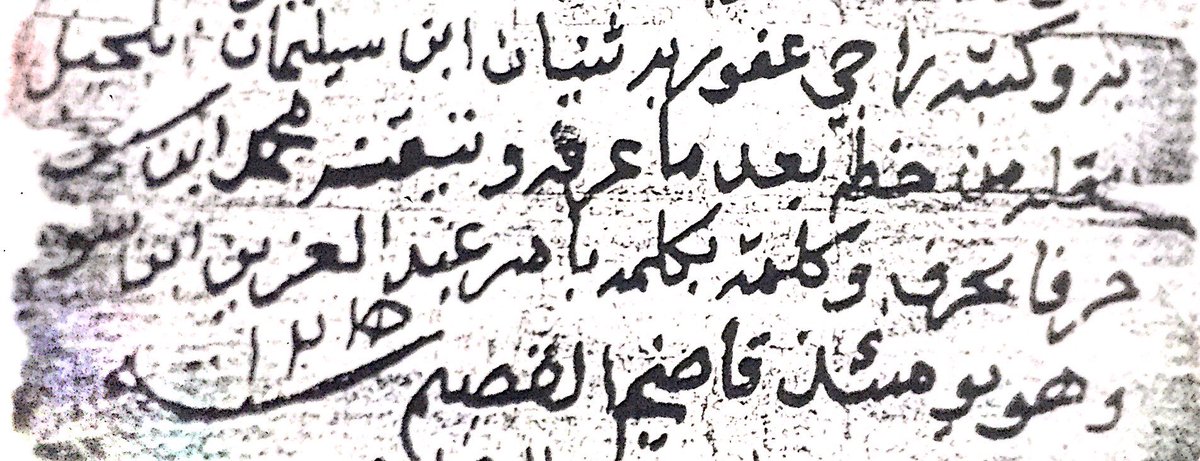 به وكتبه راجي عفو ربه ثنيان ابن سليمان
نقله من خطه بعد ما عرفه وتيقنه محمد ابن
حرفا بحرف وكلمة بكلمه بامر عبد العزيز ابن
وهو يومئذ قاضي القصيم سنه